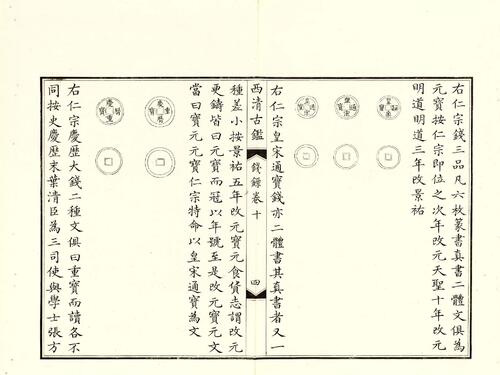 右仁宗錢三品凡六枚篆書真書二體文俱為
元寶按仁宗即位之次年改元天聖十年改元
明道明道三年改景祐
皇宋通寶
右仁宗皇宋通寶錢亦二體書其真書者又一
西清古鑑
錢錄卷十
四
種差小按景祐五年改元寶元食貨志謂改元
更鑄皆曰元寶而冠以年號至是改元寶元文
當曰寶元元寶仁宗特命以皇宋通寶為文
慶重曆寶
慶曆重寶
右仁宗慶歷大錢二種文俱曰重寶而讀各不
同按史慶歷末葉清臣為三司使與學士張方